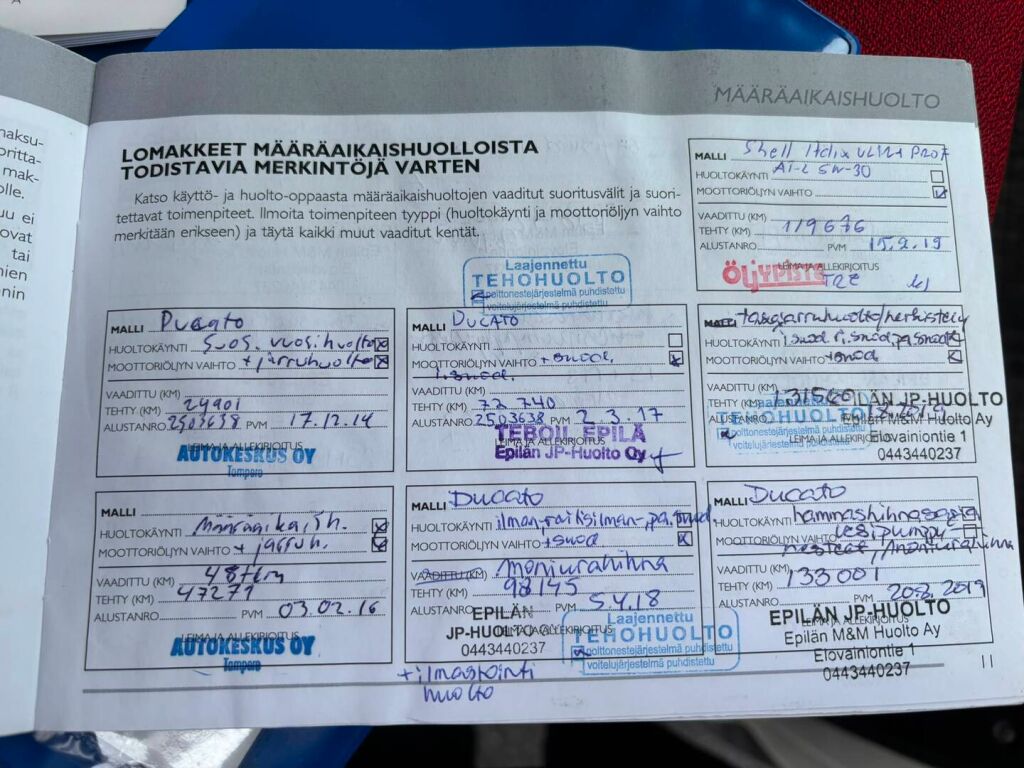 MÄÄRÄAIKAISHUOLTO
LOMAKKEET MÄÄRÄAIKAISHUOLLOISTA
TODISTAVIA MERKINTÖJÄ VARTEN
Katso käyttö- ja huolto-oppaasta määräaikaishuoltojen vaaditut suoritusvälit ja suori-
tettavat toimenpiteet. Ilmoita toimenpiteen tyyppi (huoltokäynti ja moottoriöljyn vaihto
merkitään erikseen) ja täytä kaikki muut vaaditut kentät.
MALLI Shell Helix Ultra Prof
HUOLTOKÄYNTI AT-L 5W-30
MOOTTORIÖLJYN VAIHTO
VAADITTU (KM)
TEHTY (KM) 119676
ALUSTANRO. PVM 15.2.19
LEIMA JA ALLEKIRJOITUS
ÖLJYPISTE
TRE
Laajennettu
TEHOHUOLTO
polttonestejärjestelmä puhdistettu
voitelujärjestelmä puhdistettu
MALLI Ducato
HUOLTOKÄYNTI Suos. vuosihuolto
MOOTTORIÖLJYN VAIHTO + jarruhuolto
VAADITTU (KM)
TEHTY (KM) 24901
ALUSTANRO 2503638 PVM 17.12.14
LEIMA JA ALLEKIRJOITUS
AUTOKESKUS OY
Tampere
MALLI DUCATO
HUOLTOKÄYNTI
MOOTTORIÖLJYN VAIHTO + suod,
i.suod.
VAADITTU (KM)
TEHTY (KM) 72 740
ALUSTANRO 2503638 PVM 2.3.17
LEIMA JA ALLEKIRJOITUS
TEBOIL EPILÄ
Epilän JP-Huolto Oy
MALLI tasajarruhuolto/herkistely
HUOLTOKÄYNTI i.suod r.suod, pa.suod
MOOTTORIÖLJYN VAIHTO + suod
VAADITTU (KM)
TEHTY (KM)
ALUSTANRO
EPILÄN JP-HUOLTO
Epilän M&M Huolto Ay
Elovainiontie 1
0443440237
Laajennettu
TEHOHUOLTO
polttonestejärjestelmä puhdistettu
voitelujärjestelmä puhdistettu
LEIMA JA ALLEKIRJOITUS
MALLI
HUOLTOKÄYNTI Määräaika, öh.
MOOTTORIÖLJYN VAIHTO + jarruh.
VAADITTU (KM) 48tkm
TEHTY (KM) 47271
ALUSTANRO PVM 03.02.16
LEIMA JA ALLEKIRJOITUS
AUTOKESKUS OY
Tampere
MALLI Ducato
HUOLTOKÄYNTI ilman-, raitisilman-, pa.suod.
MOOTTORIÖLJYN VAIHTO + suod
VAADITTU (KM) moniurahihna
TEHTY (KM) 98145
ALUSTANRO PVM 5.4.18
EPILÄN
JP-HUOLTO
0443440237
LEIMA JA ALLEKIRJOITUS
Laajennettu
TEHOHUOLTO
polttonestejärjestelmä puhdistettu
voitelujärjestelmä puhdistettu
+ ilmastointi
huolto
MALLI Ducato
HUOLTOKÄYNTI hammashihnasarja
MOOTTORIÖLJYN VAIHTO vesipumppu
nesteet, moniurahihna
VAADITTU (KM)
TEHTY (KM) 133 001
ALUSTANRO PVM 20.8.2019
EPILÄN JP-HUOLTO
LEIMA JA ALLEKIRJOITUS
Epilän M&M Huolto Ay
Elovainiontie 1
0443440237
11